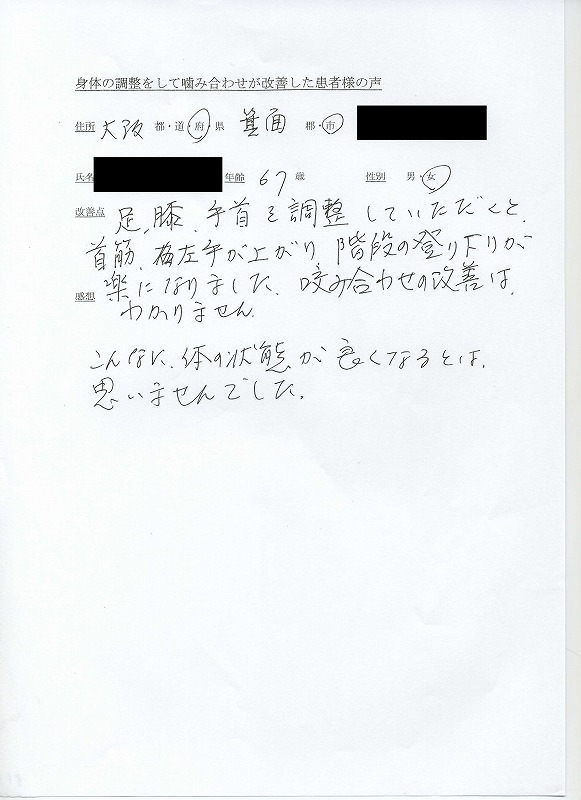 身体の調整をして噛み合わせが改善した患者様の声
住所 大阪 都・道・府・県 箕面 郡・市
氏名 年齢 67 歳 性別 男・女
改善点 足、膝、手首を調整していただくと、
首筋、左手が上がり、階段の登り下りが
楽になりました。咬み合わせの改善は、
感想 わかりません。
こんなに、体の状態が良くなるとは、
思いませんでした。